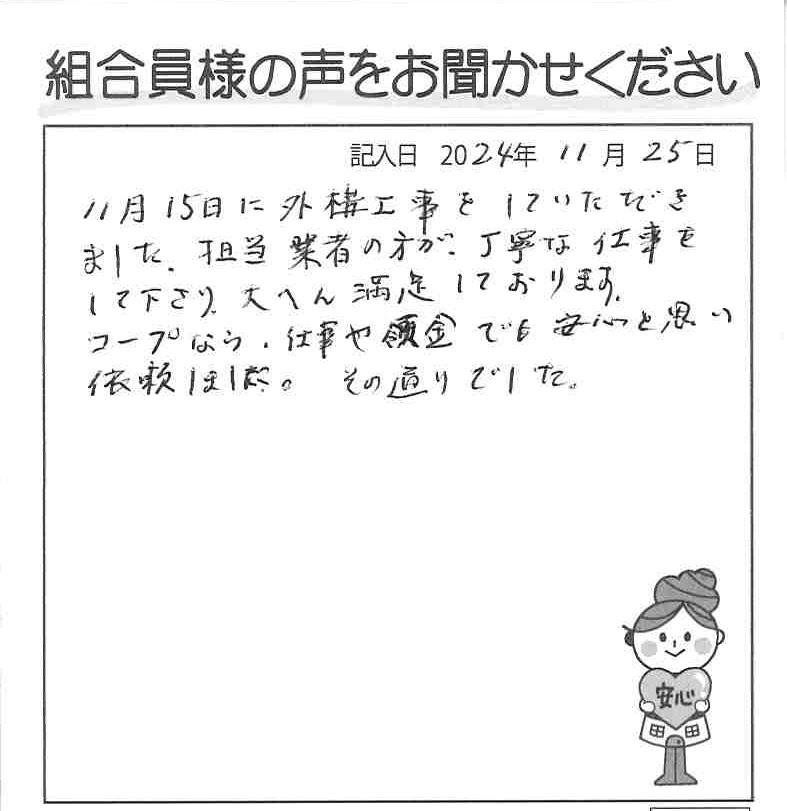 組合員様の声をお聞かせください
記入日 2024年 11月 25日
11月15日に外構工事をしていただき
ました。担当業者の方が、丁寧な仕事を
して下さり、大へん満足しております。
コープなら、仕事や領金でも安心と思い
依頼しました。その通りでした。
安心